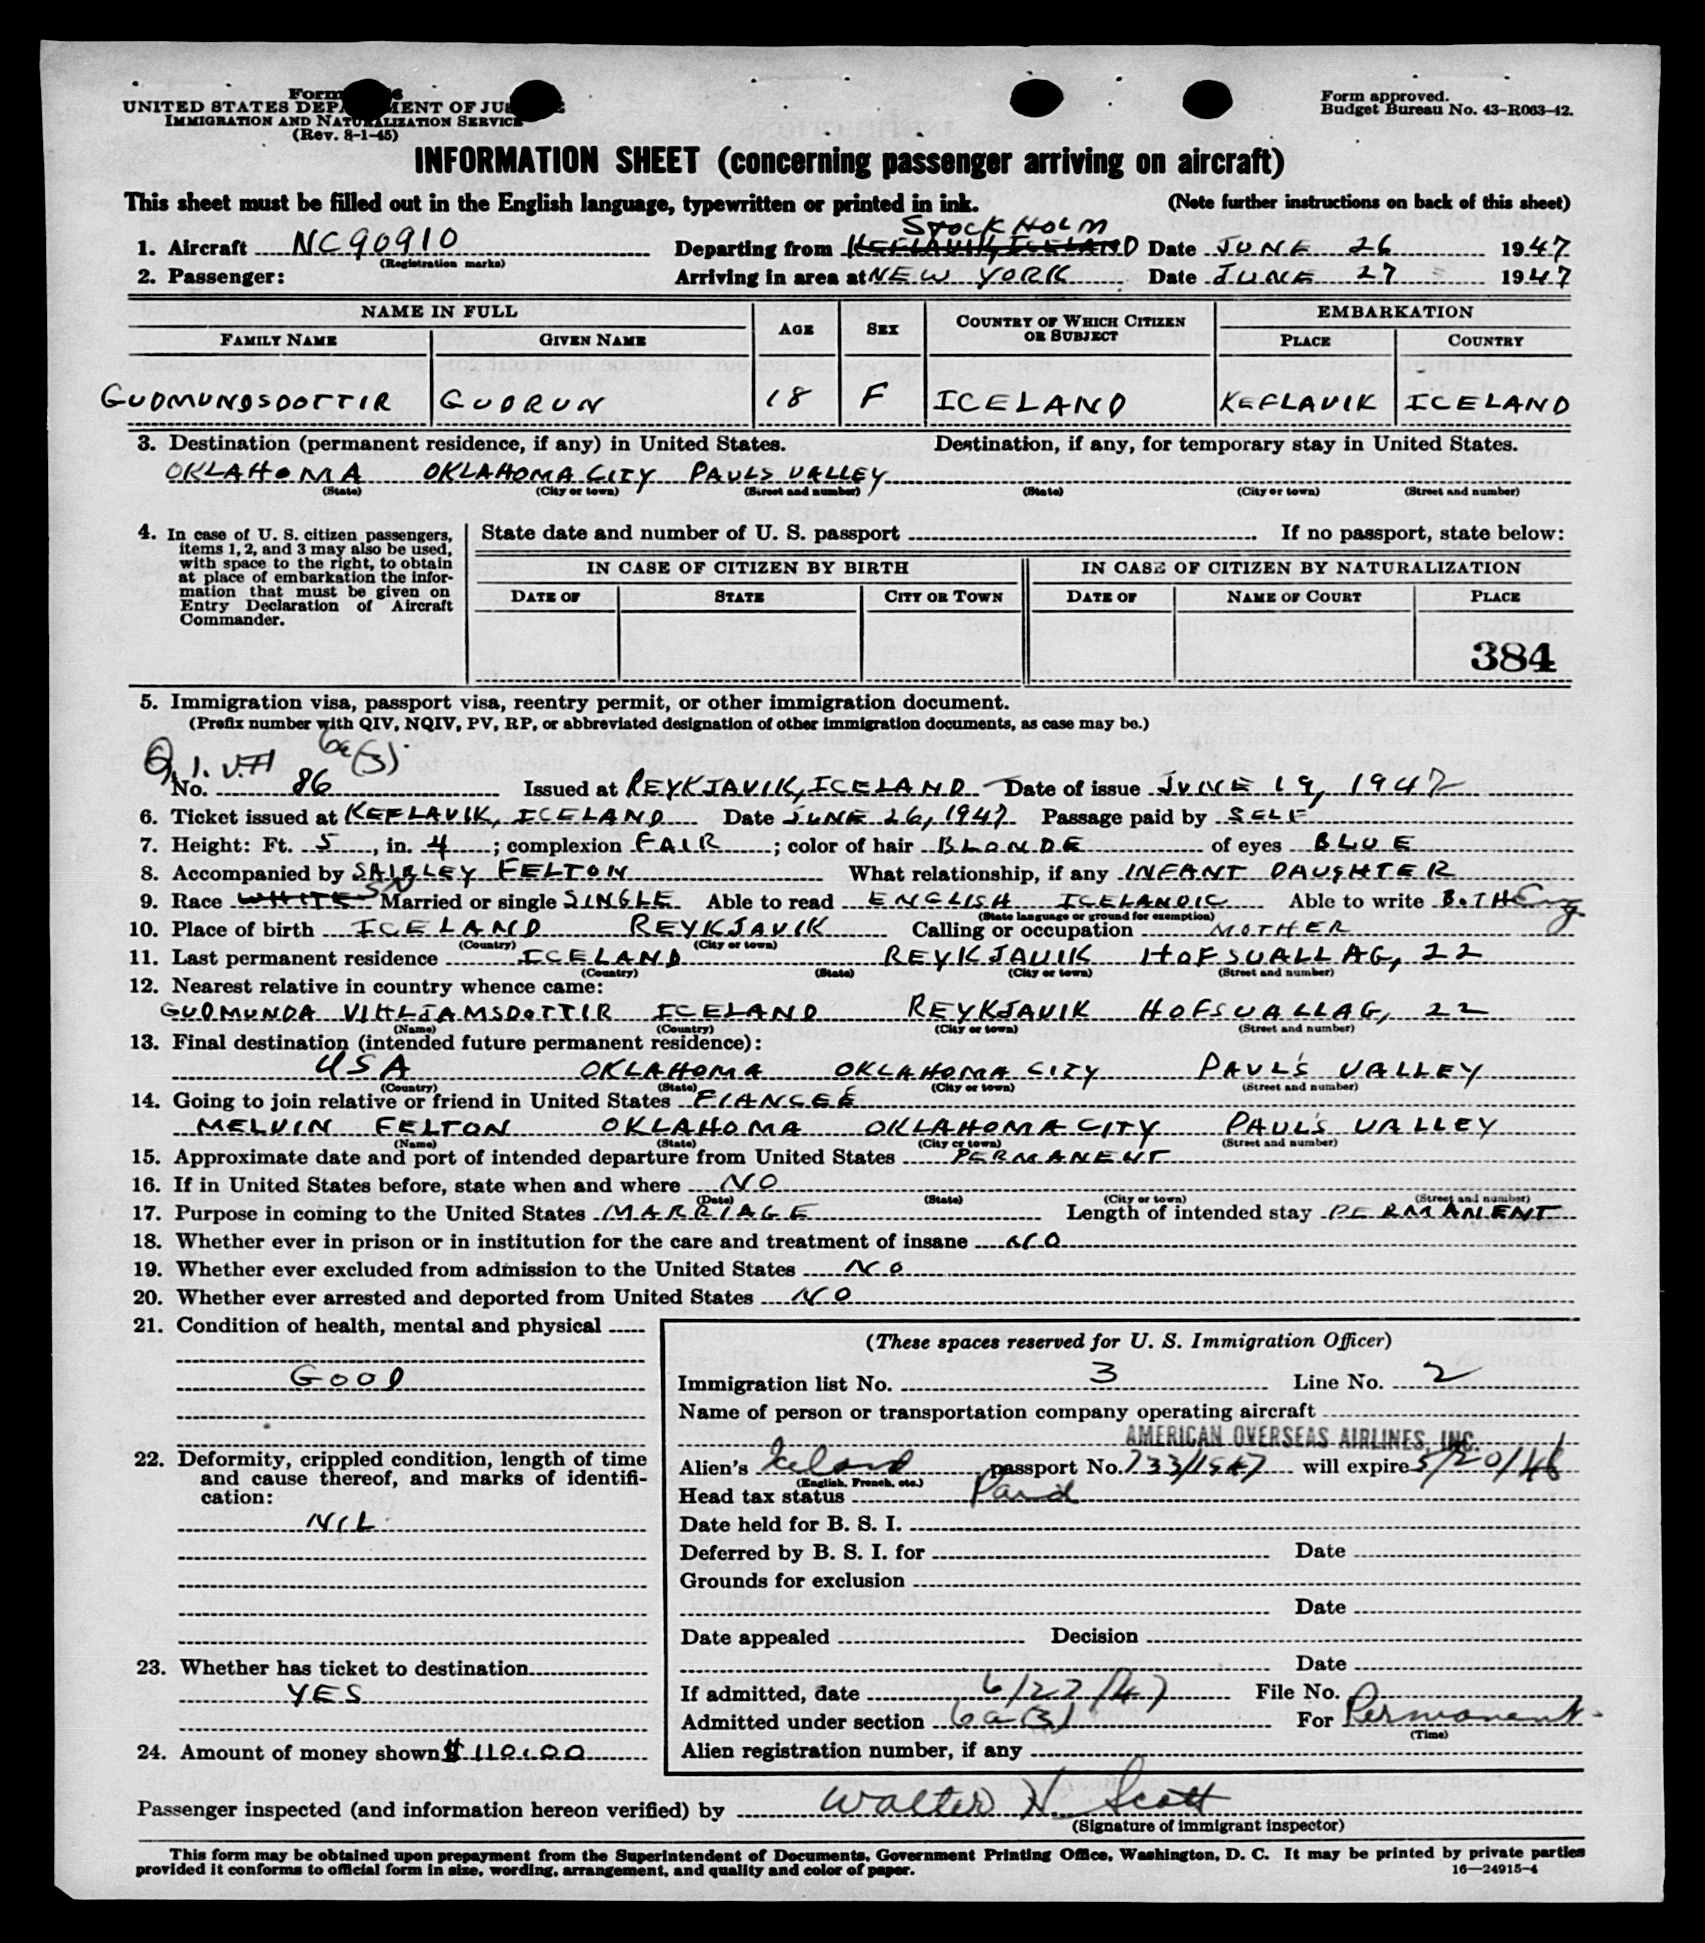 Form
UNITED STATES DEPARTMENT OF JUSTICE
IMMIGRATION AND NATURALIZATION SERVICE
(Rev. 8-1-45)
Form approved.
Budget Bureau No. 43-R063-42.
INFORMATION SHEET (concerning passenger arriving on aircraft)
This sheet must be filled out in the English language, typewritten or printed in ink. (Note further instructions on back of this sheet)
STOCKHOLM
1. Aircraft NC90910 Departing from KEFLAVIK, ICELAND Date JUNE 26 1947
(Registration marks)
2. Passenger: Arriving in area at NEW YORK Date JUNE 27 1947
NAME IN FULL AGE SEX COUNTRY OF WHICH CITIZEN OR SUBJECT EMBARKATION
FAMILY NAME GIVEN NAME PLACE COUNTRY
GUDMUNDSDOTTIR GUDRUN 18 F ICELAND KEFLAVIK ICELAND
3. Destination (permanent residence, if any) in United States. Destination, if any, for temporary stay in United States.
OKLAHOMA OKLAHOMA CITY PAULS VALLEY
(State) (City or town) (Street and number) (State) (City or town) (Street and number)
4. In case of U. S. citizen passengers, items 1, 2, and 3 may also be used, with space to the right, to obtain at place of embarkation the information that must be given on Entry Declaration of Aircraft Commander.
State date and number of U. S. passport If no passport, state below:
IN CASE OF CITIZEN BY BIRTH IN CASE OF CITIZEN BY NATURALIZATION
DATE OF STATE CITY OR TOWN DATE OF NAME OF COURT PLACE
384
5. Immigration visa, passport visa, reentry permit, or other immigration document.
(Prefix number with QIV, NQIV, PV, RP, or abbreviated designation of other immigration documents, as case may be.)
Q.I.V.# 6a(3)
No. 86 Issued at REYKJAVIK, ICELAND Date of issue JUNE 19, 1947
6. Ticket issued at KEFLAVIK, ICELAND Date JUNE 26, 1947 Passage paid by SELF
7. Height: Ft. 5, in. 4; complexion FAIR; color of hair BLONDE of eyes BLUE
8. Accompanied by SHIRLEY FELTON What relationship, if any INFANT DAUGHTER
9. Race WHITE SN Married or single SINGLE Able to read ENGLISH ICELANDIC Able to write BOTH Eng
(State language or ground for exemption)
10. Place of birth ICELAND REYKJAVIK Calling or occupation MOTHER
(Country) (City or town)
11. Last permanent residence ICELAND REYKJAVIK HOFSVALLAG, 22
(Country) (State) (City or town) (Street and number)
12. Nearest relative in country whence came:
GUDMUNDA VIHLJAMSDOTTIR ICELAND REYKJAVIK HOFSVALLAG, 22
(Name) (Country) (City or town) (Street and number)
13. Final destination (intended future permanent residence):
USA OKLAHOMA OKLAHOMA CITY PAUL'S VALLEY
(Country) (State) (City or town) (Street and number)
14. Going to join relative or friend in United States FIANCEÉ
MELVIN FELTON OKLAHOMA OKLAHOMA CITY PAUL'S VALLEY
(Name) (State) (City or town) (Street and number)
15. Approximate date and port of intended departure from United States PERMANENT
16. If in United States before, state when and where NO
(Date) (State) (City or town) (Street and number)
17. Purpose in coming to the United States MARRIAGE Length of intended stay PERMANENT
18. Whether ever in prison or in institution for the care and treatment of insane NO
19. Whether ever excluded from admission to the United States NO
20. Whether ever arrested and deported from United States NO
21. Condition of health, mental and physical
GOOD
22. Deformity, crippled condition, length of time and cause thereof, and marks of identification:
NIL
23. Whether has ticket to destination
YES
24. Amount of money shown $110.00
(These spaces reserved for U. S. Immigration Officer)
Immigration list No. 3 Line No. 2
Name of person or transportation company operating aircraft
AMERICAN OVERSEAS AIRLINES, INC.
Alien's Iceland passport No. 733/1947 will expire 5/20/48
(English, French, etc.)
Head tax status Paid
Date held for B. S. I.
Deferred by B. S. I. for Date
Grounds for exclusion
Date
Date appealed Decision
Date
If admitted, date 6/27/47 File No.
Admitted under section 6a(3) For Permanent
(Time)
Alien registration number, if any
Passenger inspected (and information hereon verified) by Walter H. Scott
(Signature of immigrant inspector)
This form may be obtained upon prepayment from the Superintendent of Documents, Government Printing Office, Washington, D. C. It may be printed by private parties
provided it conforms to official form in size, wording, arrangement, and quality and color of paper. 16—24915-4